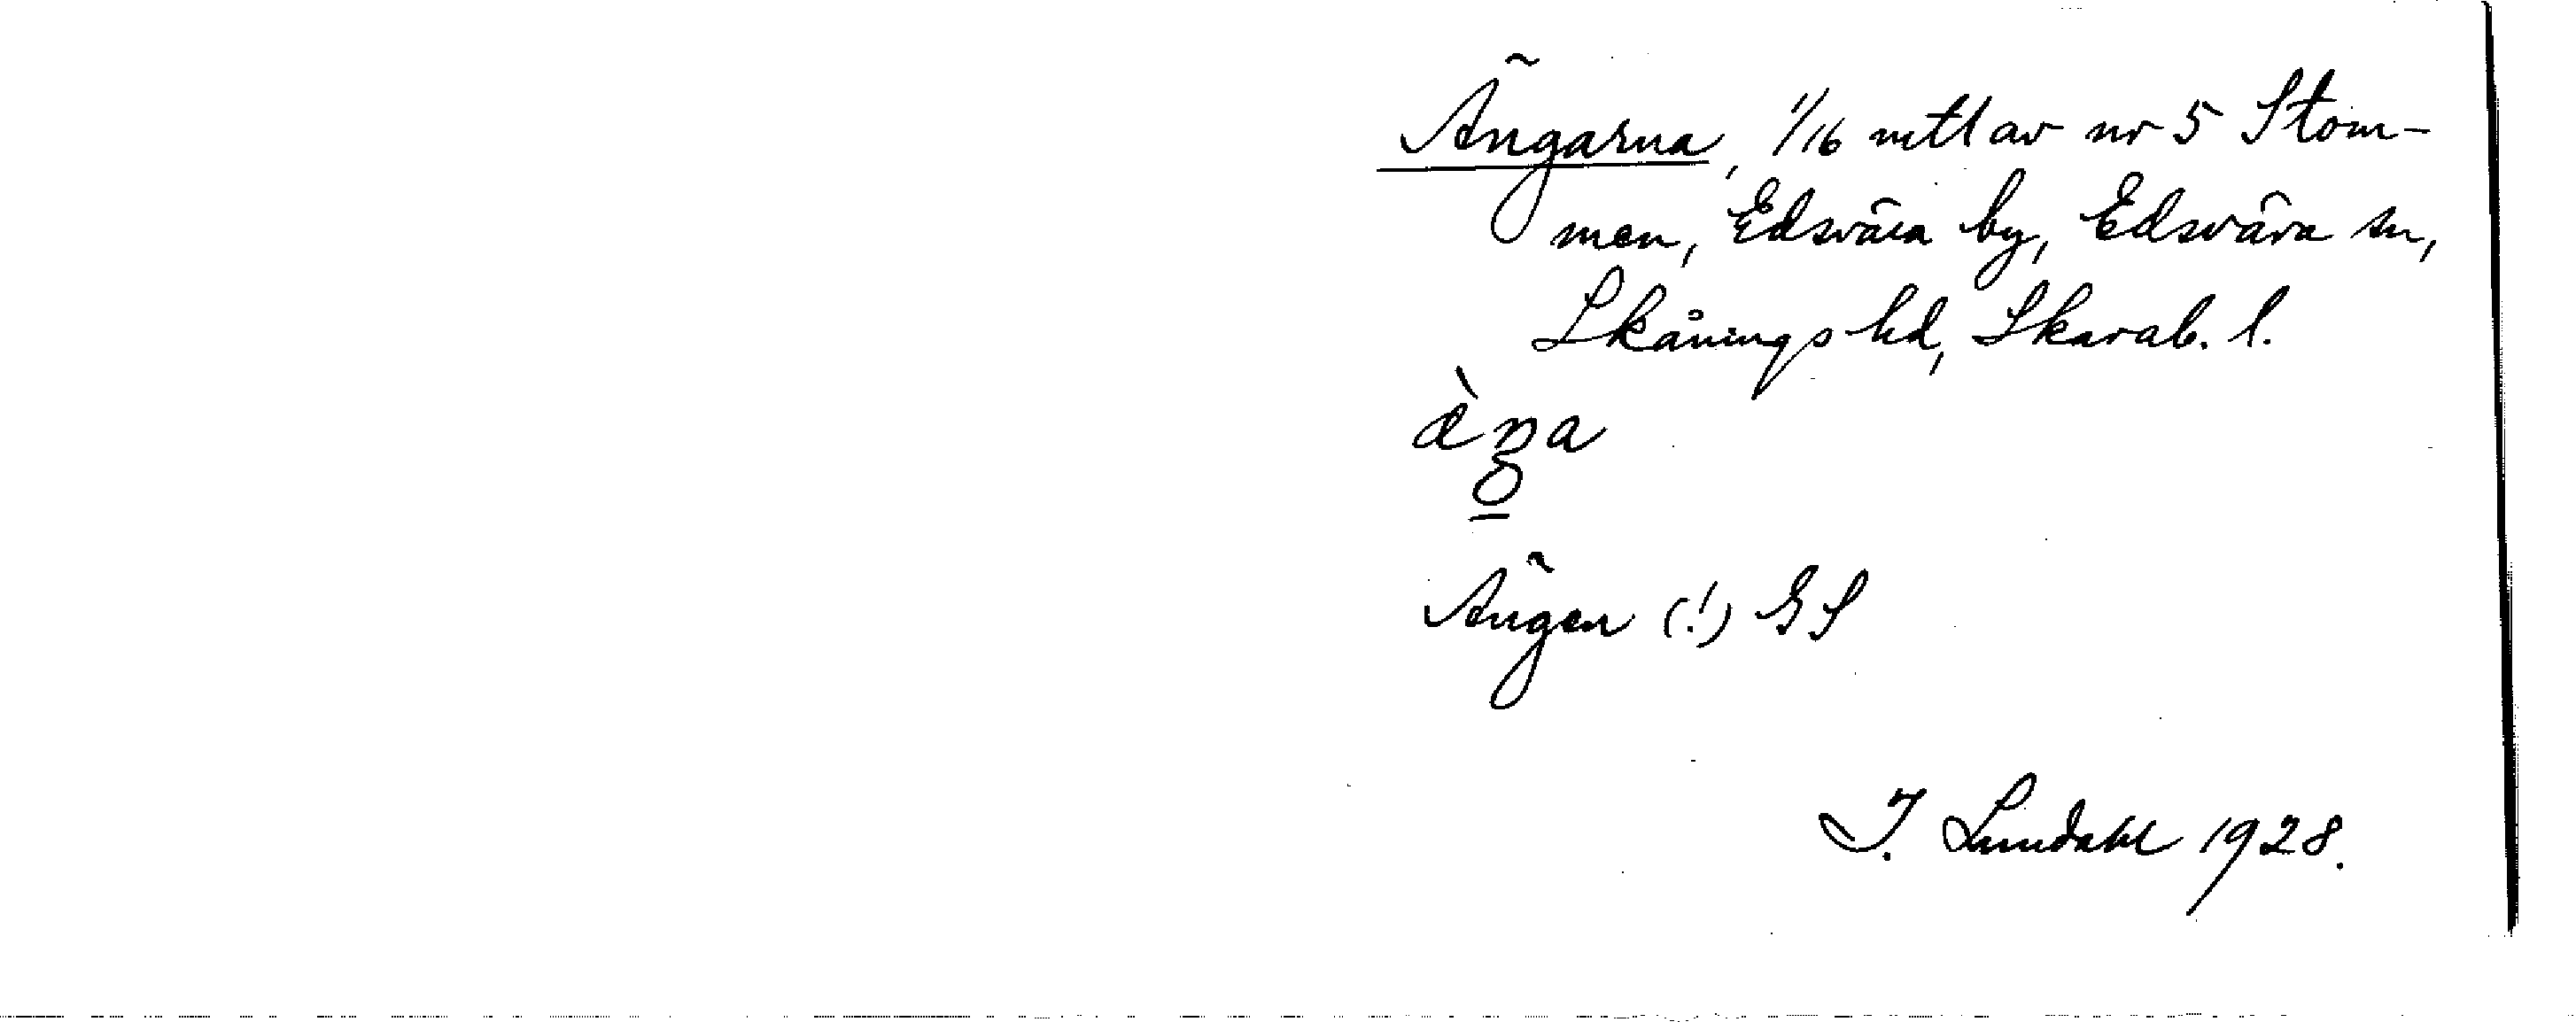 Ängarna, 1/16 mtl av nr 5 Stom-
men, Edsvära by, Edsvära sn,
Skånings hd, Skarab. l.
Ängen (!) GS
I. Lundahl 1928.